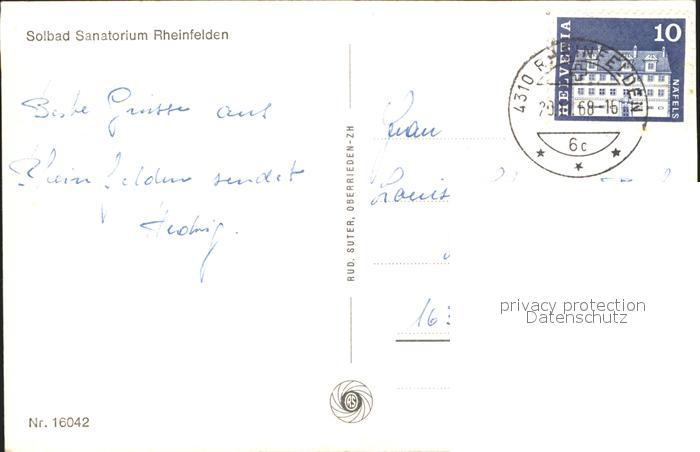 Solbad Sanatorium Rheinfelden
HELVETIA
10
NÄFELS
4310 RHEINFELDEN
68-16
6c
Beste Grüsse aus
Rheinfelden sendet
Hedwig.
RUD. SUTER, OBERRIEDEN-ZH
Frau
Louis
16
privacy protection
Datenschutz
Nr. 16042